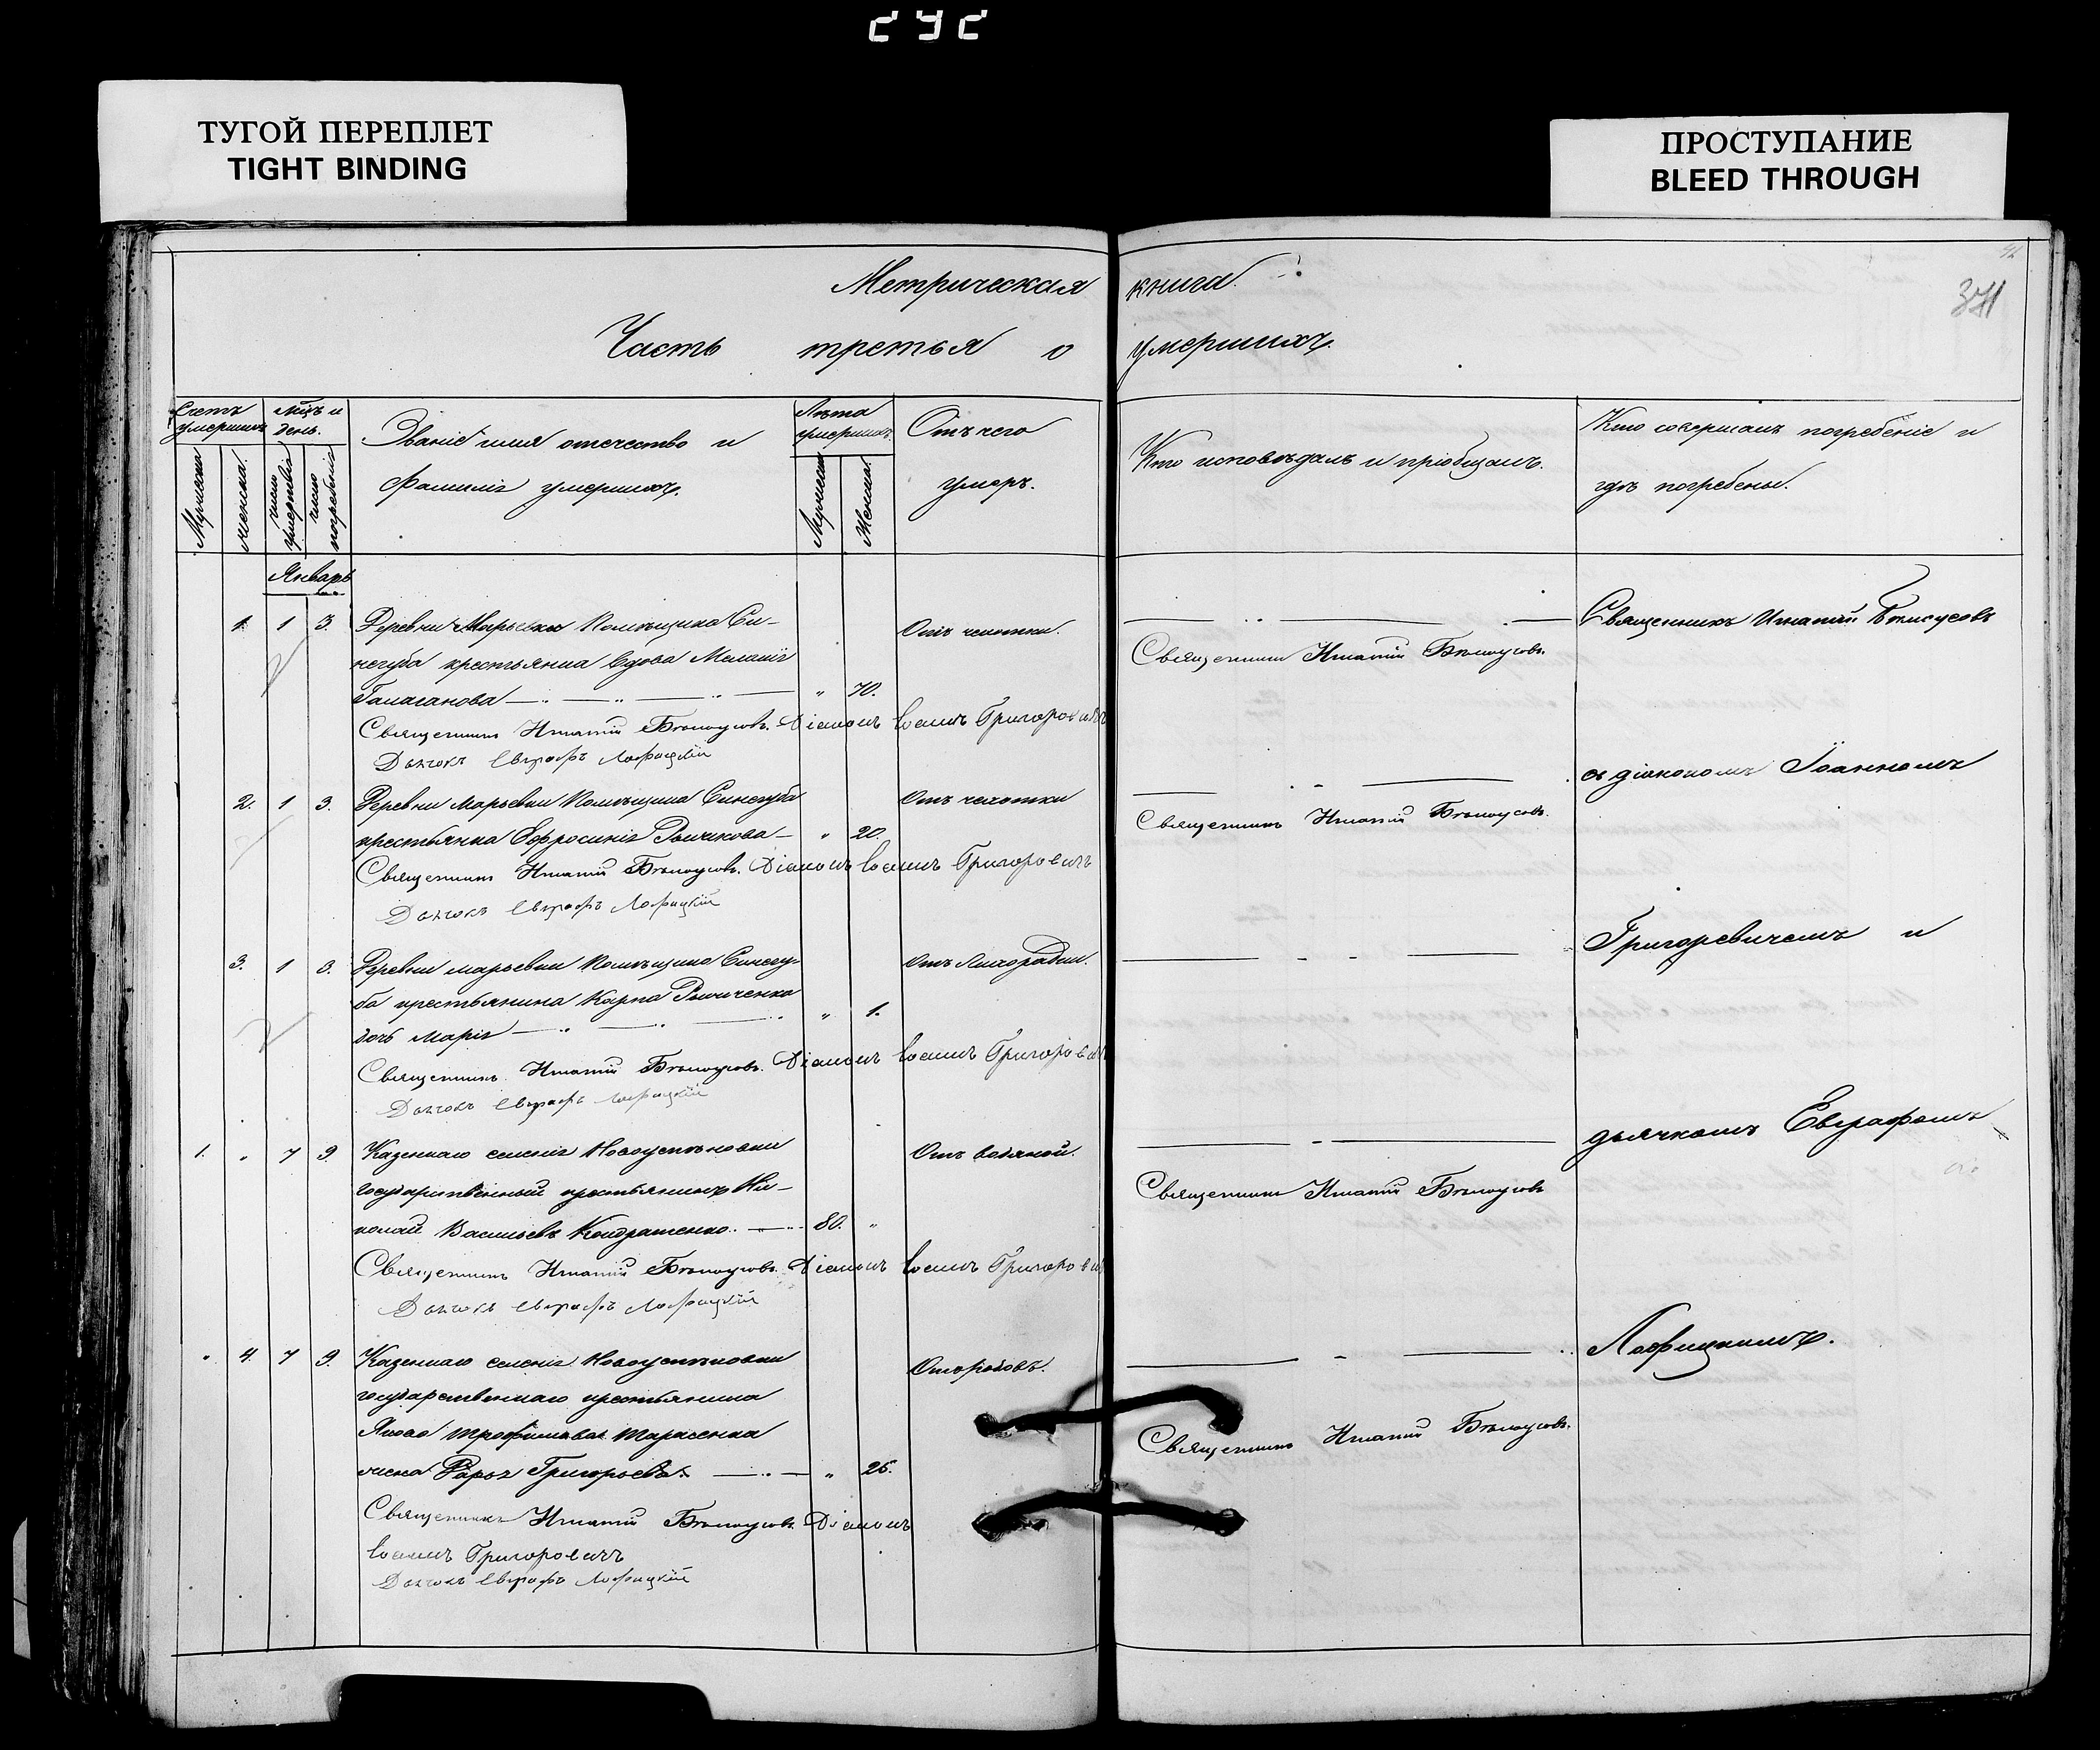 ТУГОЙ ПЕРЕПЛЕТ
TIGHT BINDING
ПРОСТУПАНИЕ
BLEED THROUGH
371
Метрическая книга.
Часть третья о умершихъ.
Счетъ умершихъ
Мужеска
женска.
мцъ и день.
число умертвія
число погребенія
Званіе имя отечество и
фамилія умершихъ.
Лѣта умершихъ
Мужеска
Женска
Отъ чего
умеръ.
Кто исповѣдалъ и пріобщалъ.
Кто совершалъ погребеніе и
гдѣ погребены.
Январь
1. 1 3. Деревни Марьевки Помѣщика Си-
негуба крестьянка вдова Меланія
Галаганова " 70. Отъ чахотки.
Священникъ Игнатій Бѣлоусовъ. Діаконъ Іоаннъ Григоровичъ
Дьячокъ Евграфъ Лофицкій
Священникъ Игнатій Бѣлоусовъ.
Священникъ Игнатій Бѣлоусовъ
2. 1 3. Деревни Марьевки Помѣщика Синегуба
крестьянка Ефросинія " 20. Отъ чахотки
Священникъ Игнатій Бѣлоусовъ. Діаконъ Іоаннъ Григоровичъ
Дьячокъ Евграфъ Лофицкій
Священникъ Игнатій Бѣлоусовъ.
съ діакономъ Іоанномъ
3. 1 3. Деревни Марьевки Помѣщика Синегу-
ба крестьянина Карпа
дочь Марія " 1. Отъ Лихорадки.
Священникъ Игнатій Бѣлоусовъ. Діаконъ Іоаннъ Григоровичъ
Дьячокъ Евграфъ Лофицкій
Григоревичемъ и
1. " 7 9. Казеннаго селенія Новоуспеновки
государственный крестьянинъ Ни-
колай Васильевъ Кондратенко. 80. " Отъ водяной.
Священникъ Игнатій Бѣлоусовъ Діаконъ Іоаннъ Григоровичъ
Дьячокъ Евграфъ Лофицкій
Священникъ Игнатій Бѣлоусовъ
дьячкомъ Евграфомъ
" 4. 7 9. Казеннаго селенія Новоуспеновки
государственнаго крестьянина
Якова Трофимова Тарасенка
жена Григорьева " 26. Отъ родовъ.
Священникъ Игнатій Бѣлоусовъ Діаконъ
Іоаннъ Григоровичъ
Дьячокъ Евграфъ Лофицкій
Священникъ Игнатій Бѣлоусовъ.
Лофицкимъ.